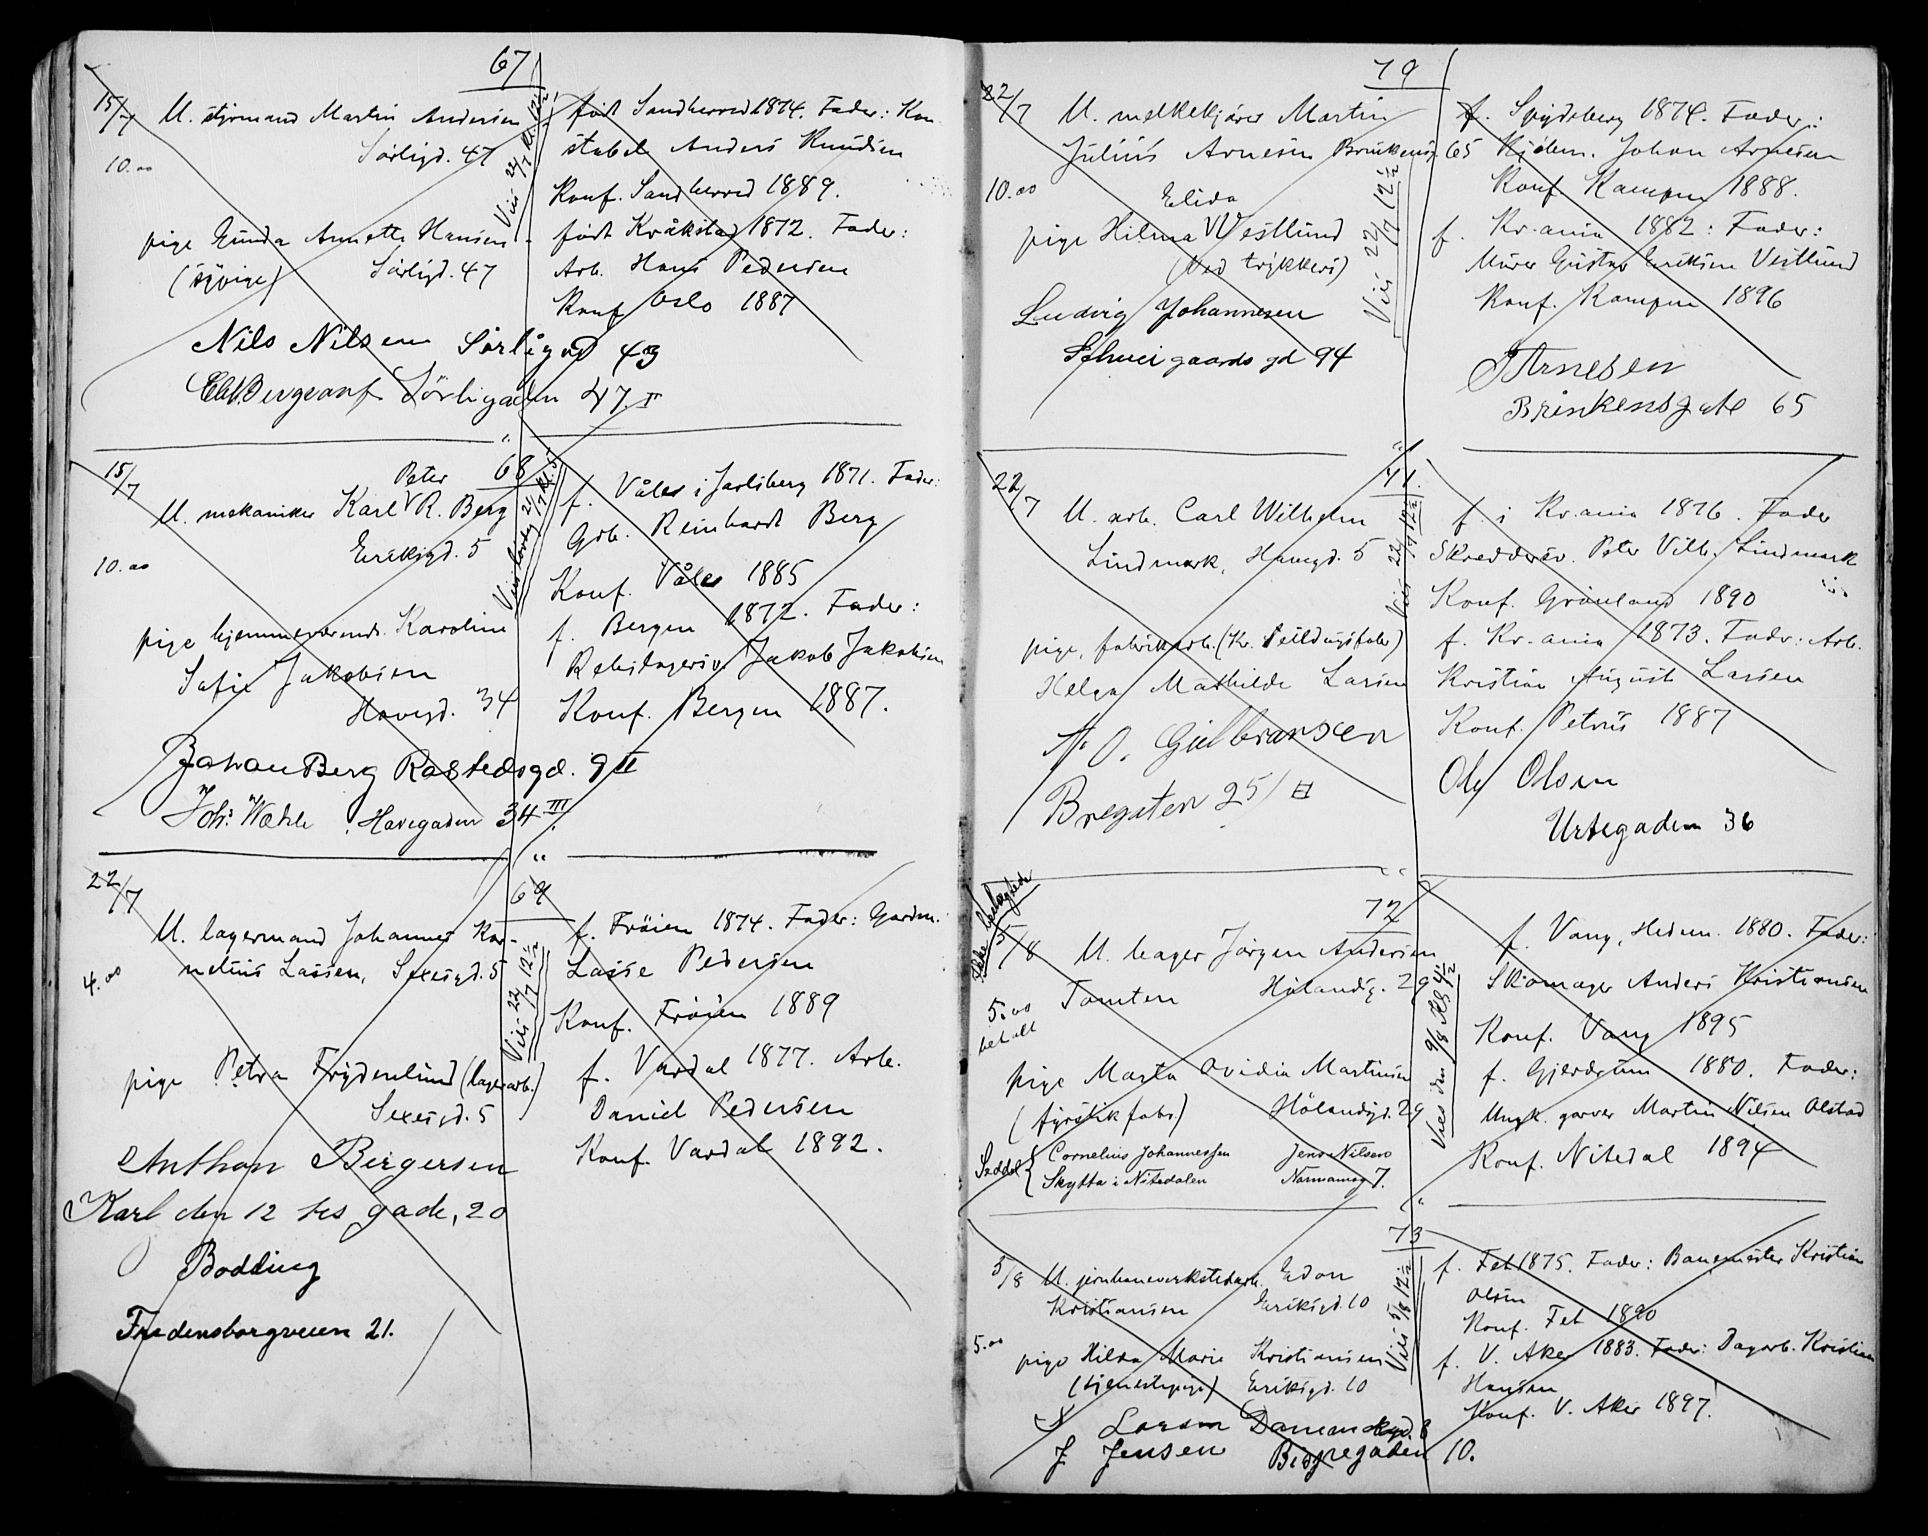 67
15/7 U. styrmand Martin Andersen
Sørligd. 47
10.00
pige Gunda Annette Hansen
(sypige) Sørligd. 47
Vies 22/7 kl. 12½
født Sandherred 1874. Fader: Kon-
stabel Anders Knudsen
Konf. Sandherred 1889.
født Kråkstad 1872. Fader:
Arb. Hans Pedersen
Konf Oslo 1887
Nils Nilsen Sørligad 43
Sörligaden 47. II
68
15/7
Peter
U. mekaniker Karl V R. Berg
Eriksgd. 5
10.00
pige hjemmeværende Karoline
Sofie Jakobsen
Havegd. 34
f. Våler i Jarlsberg 1871. Fader:
Grb. Reinhardt Berg
Konf. Våler 1885
f. Bergen 1872. Fader:
Rebslagersv. Jakob Jakobsen
Konf. Bergen 1887.
Johan Berg Rostedsgd. 9 II
Joh: Wæhle Havegaden 34 III
69
22/7
U. lagermand Johannes Kor-
nelius Lassen, Sexesgd. 5
4.00
pige Petra Frydenlund (lagerarb.)
Sexesgd. 5
Viei 22/7 12½
f. Frøien 1874. Fader: Gaardm.
Lasse Pedersen
Konf. Frøien 1889
f. Vardal 1877. Arb.
Daniel Pedersen
Konf. Vardal 1892.
Anthon Bergersen
Karl den 12 tes gade, 20
Bodding
Fredensborgveien 21.
70
22/7 U. melkekjører Martin
Julius Arnesen Brinkensg. 65
10.00
Elida
pige Hilma V Westlund
(Ved trykkeri)
Viei 22/7 12½
f. Spydeberg 1874. Fader:
Kjølem. Johan Arnesen
Konf Kampen 1888.
f. Kr.ania 1882: Fader:
Murer Gustav Eriksen Vestlund
Konf. Kampen 1896
Ludvig Johannesen
Schweigaards gd 94
J Arnesen
Brinkensgate 65
71.
22/7 U. arb. Carl Wilhelm
Lindmark, Heimgd. 5
pige, fabrikarb. (Kr. Seildugsfabr)
Helga Mathilde Larsen
Viei 22/7 12½
f. i Kr.ania 1876. Fader
Skreddersv. Peter Vilh. Lindmark
Konf. Grønland 1890
f. Kr.ania 1873. Fader: Arb.
Kristian August Larsen
Konf. Petrus 1887
O. Gulbransen
Bregaten 25/II
Ole Olsen
Urtegaden 36
72
5/8 U. bager Jørgen Andersen
Tomten Hølandsg. 29
5.00
betalt
pige Marta Ovidia Martinsen
(fyrstikfabr.) Hølandsgd. 29
Viei den 9/8 Kl. 4½
f. Vang, Hedem. 1880. Fader:
Skomager Anders Kristiansen
Konf. Vang 1895
f. Gjerdrum 1880. Fader:
Ungk. garver Martin Nilsen Olstad
Konf. Nitedal 1894
Seddel { Cornelius Johannessen Jens Nilsen
Skytta i Nitedalen Normannsg 7.
73
5/8 U. jernbaneverkstedarb. Edon
Kristiansen Eriksgd. 10
5.00
pige Hilda Marie Kristiansen
(tjenestepige) Eriksgd. 10
Viei 5/8 12½
f. Fet 1875. Fader: Banemester Kristian
Olsen
Konf. Fet 1890
f. V. Aker 1883. Fader: Dagarb. Kristian
Hansen
Konf. V. Aker 1897.
Larsen Danemarksgd. 8
J. Jensen Bispegaden 10.